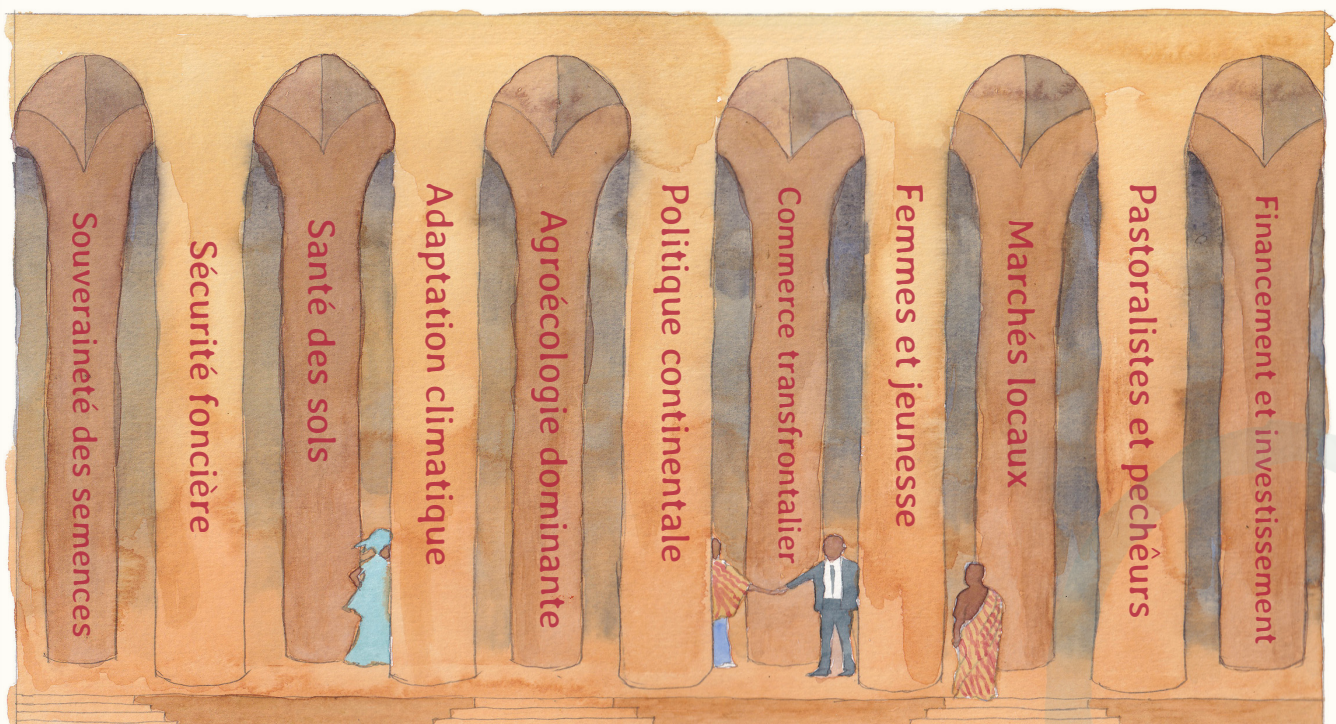 Souveraineté des semences
Sécurité foncière
Santé des sols
Adaptation climatique
Agroécologie dominante
Politique continentale
Commerce transfrontalier
Femmes et jeunesse
Marchés locaux
Pastoralistes et pechêurs
Financement et investissement